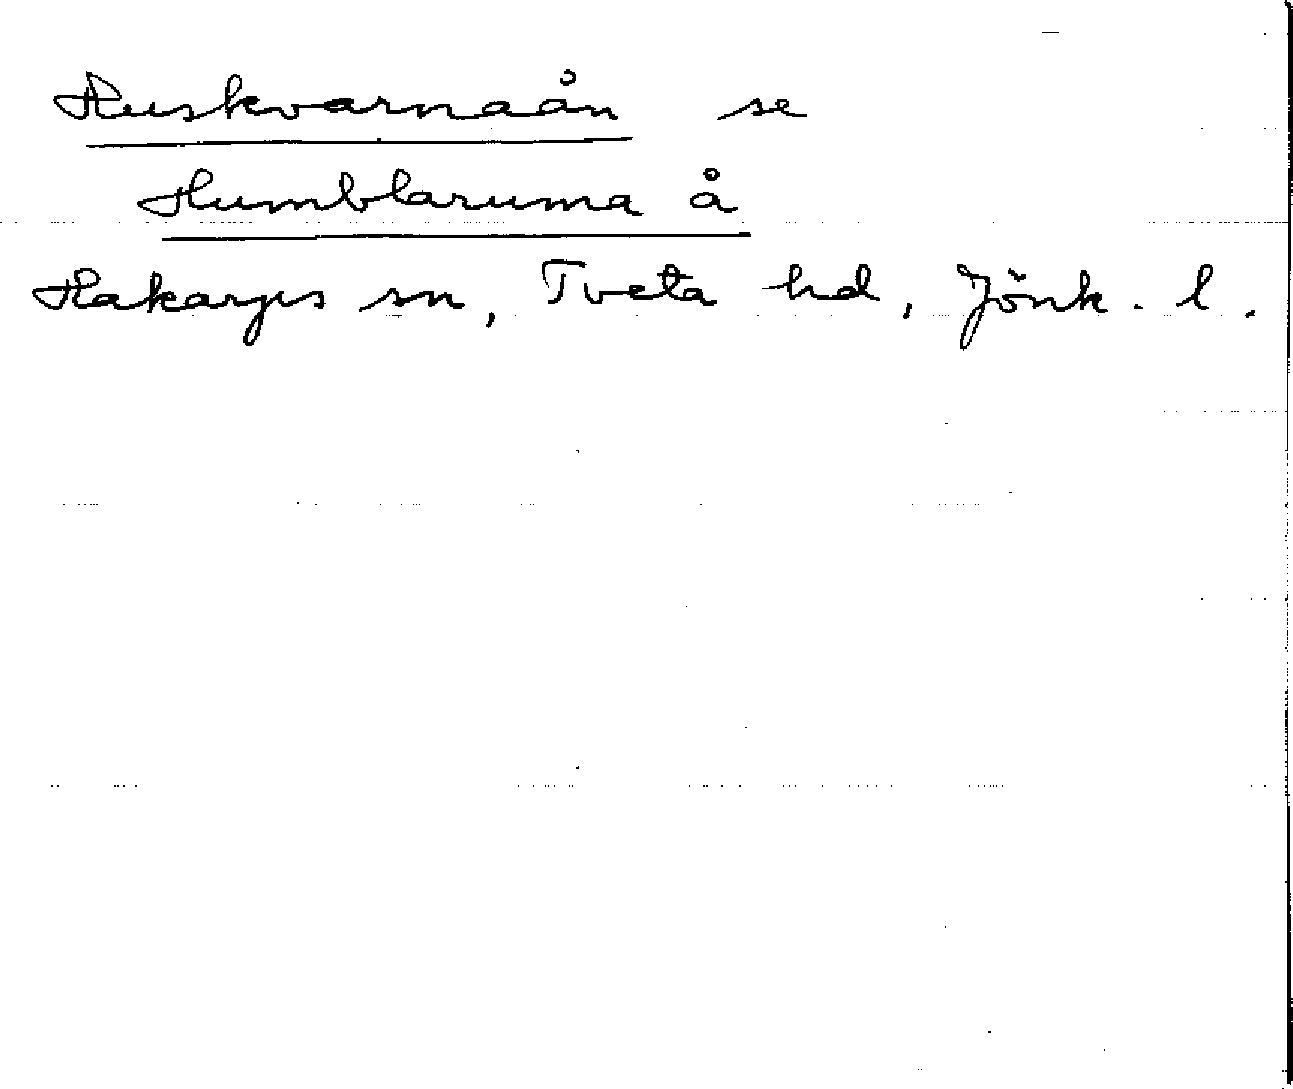 Huskvarnaån se
Humblaruma å
Hakarps sn, Tveta hd, Jönk. l.